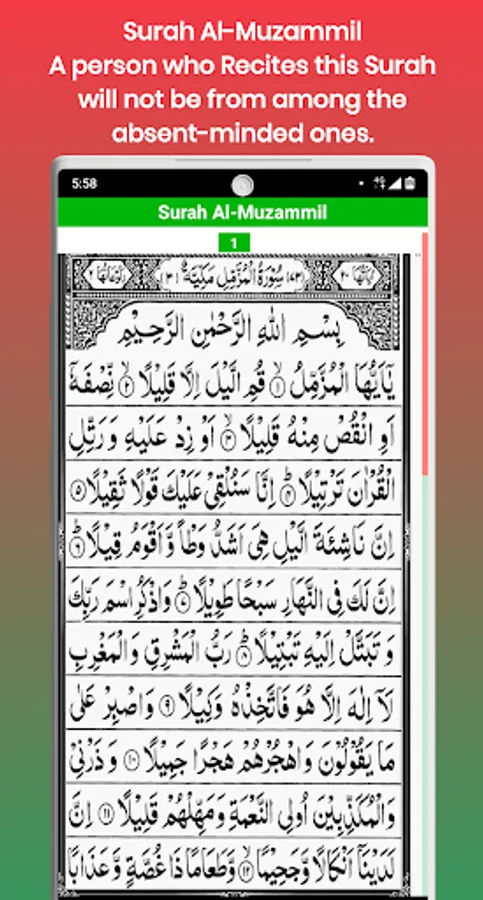 Surah Al-Muzammil
A person who Recites this Surah
will not be from among the
absent-minded ones.
5:58
4G
Surah Al-Muzammil
1
اٰیَاتُهَا ٢٠ (٧٣) سُوْرَةُ الْمُزَّمِّلِ مَكِّيَّةٌ (٣)
بِسْمِ اللهِ الرَّحْمٰنِ الرَّحِيْمِ
يٰۤاَيُّهَا الْمُزَّمِّلُ ۙ﴿١﴾ قُمِ الَّيْلَ اِلَّا قَلِيْلًا ۙ﴿٢﴾ نِّصْفَهٗۤ
اَوِ انْقُصْ مِنْهُ قَلِيْلًا ۙ﴿٣﴾ اَوْ زِدْ عَلَيْهِ وَ رَتِّلِ
الْقُرْاٰنَ تَرْتِيْلًا ؕ﴿٤﴾ اِنَّا سَنُلْقِيْ عَلَيْكَ قَوْلًا ثَقِيْلًا ﴿٥﴾
اِنَّ نَاشِئَةَ الَّيْلِ هِيَ اَشَدُّ وَطْاً وَّ اَقْوَمُ قِيْلًا ؕ﴿٦﴾
اِنَّ لَكَ فِي النَّهَارِ سَبْحًا طَوِيْلًا ؕ﴿٧﴾ وَاذْكُرِ اسْمَ رَبِّكَ
وَ تَبَتَّلْ اِلَيْهِ تَبْتِيْلًا ؕ﴿٨﴾ رَبُّ الْمَشْرِقِ وَ الْمَغْرِبِ
لَاۤ اِلٰهَ اِلَّا هُوَ فَاتَّخِذْهُ وَكِيْلًا ﴿٩﴾ وَ اصْبِرْ عَلٰى
مَا يَقُوْلُوْنَ وَ اهْجُرْهُمْ هَجْرًا جَمِيْلًا ﴿١٠﴾ وَ ذَرْنِيْ
وَ الْمُكَذِّبِيْنَ اُولِي النَّعْمَةِ وَ مَهِّلْهُمْ قَلِيْلًا ﴿١١﴾ اِنَّ
لَدَيْنَاۤ اَنْكَالًا وَّ جَحِيْمًا ۙ﴿١٢﴾ وَّ طَعَامًا ذَا غُصَّةٍ وَّ عَذَابًا